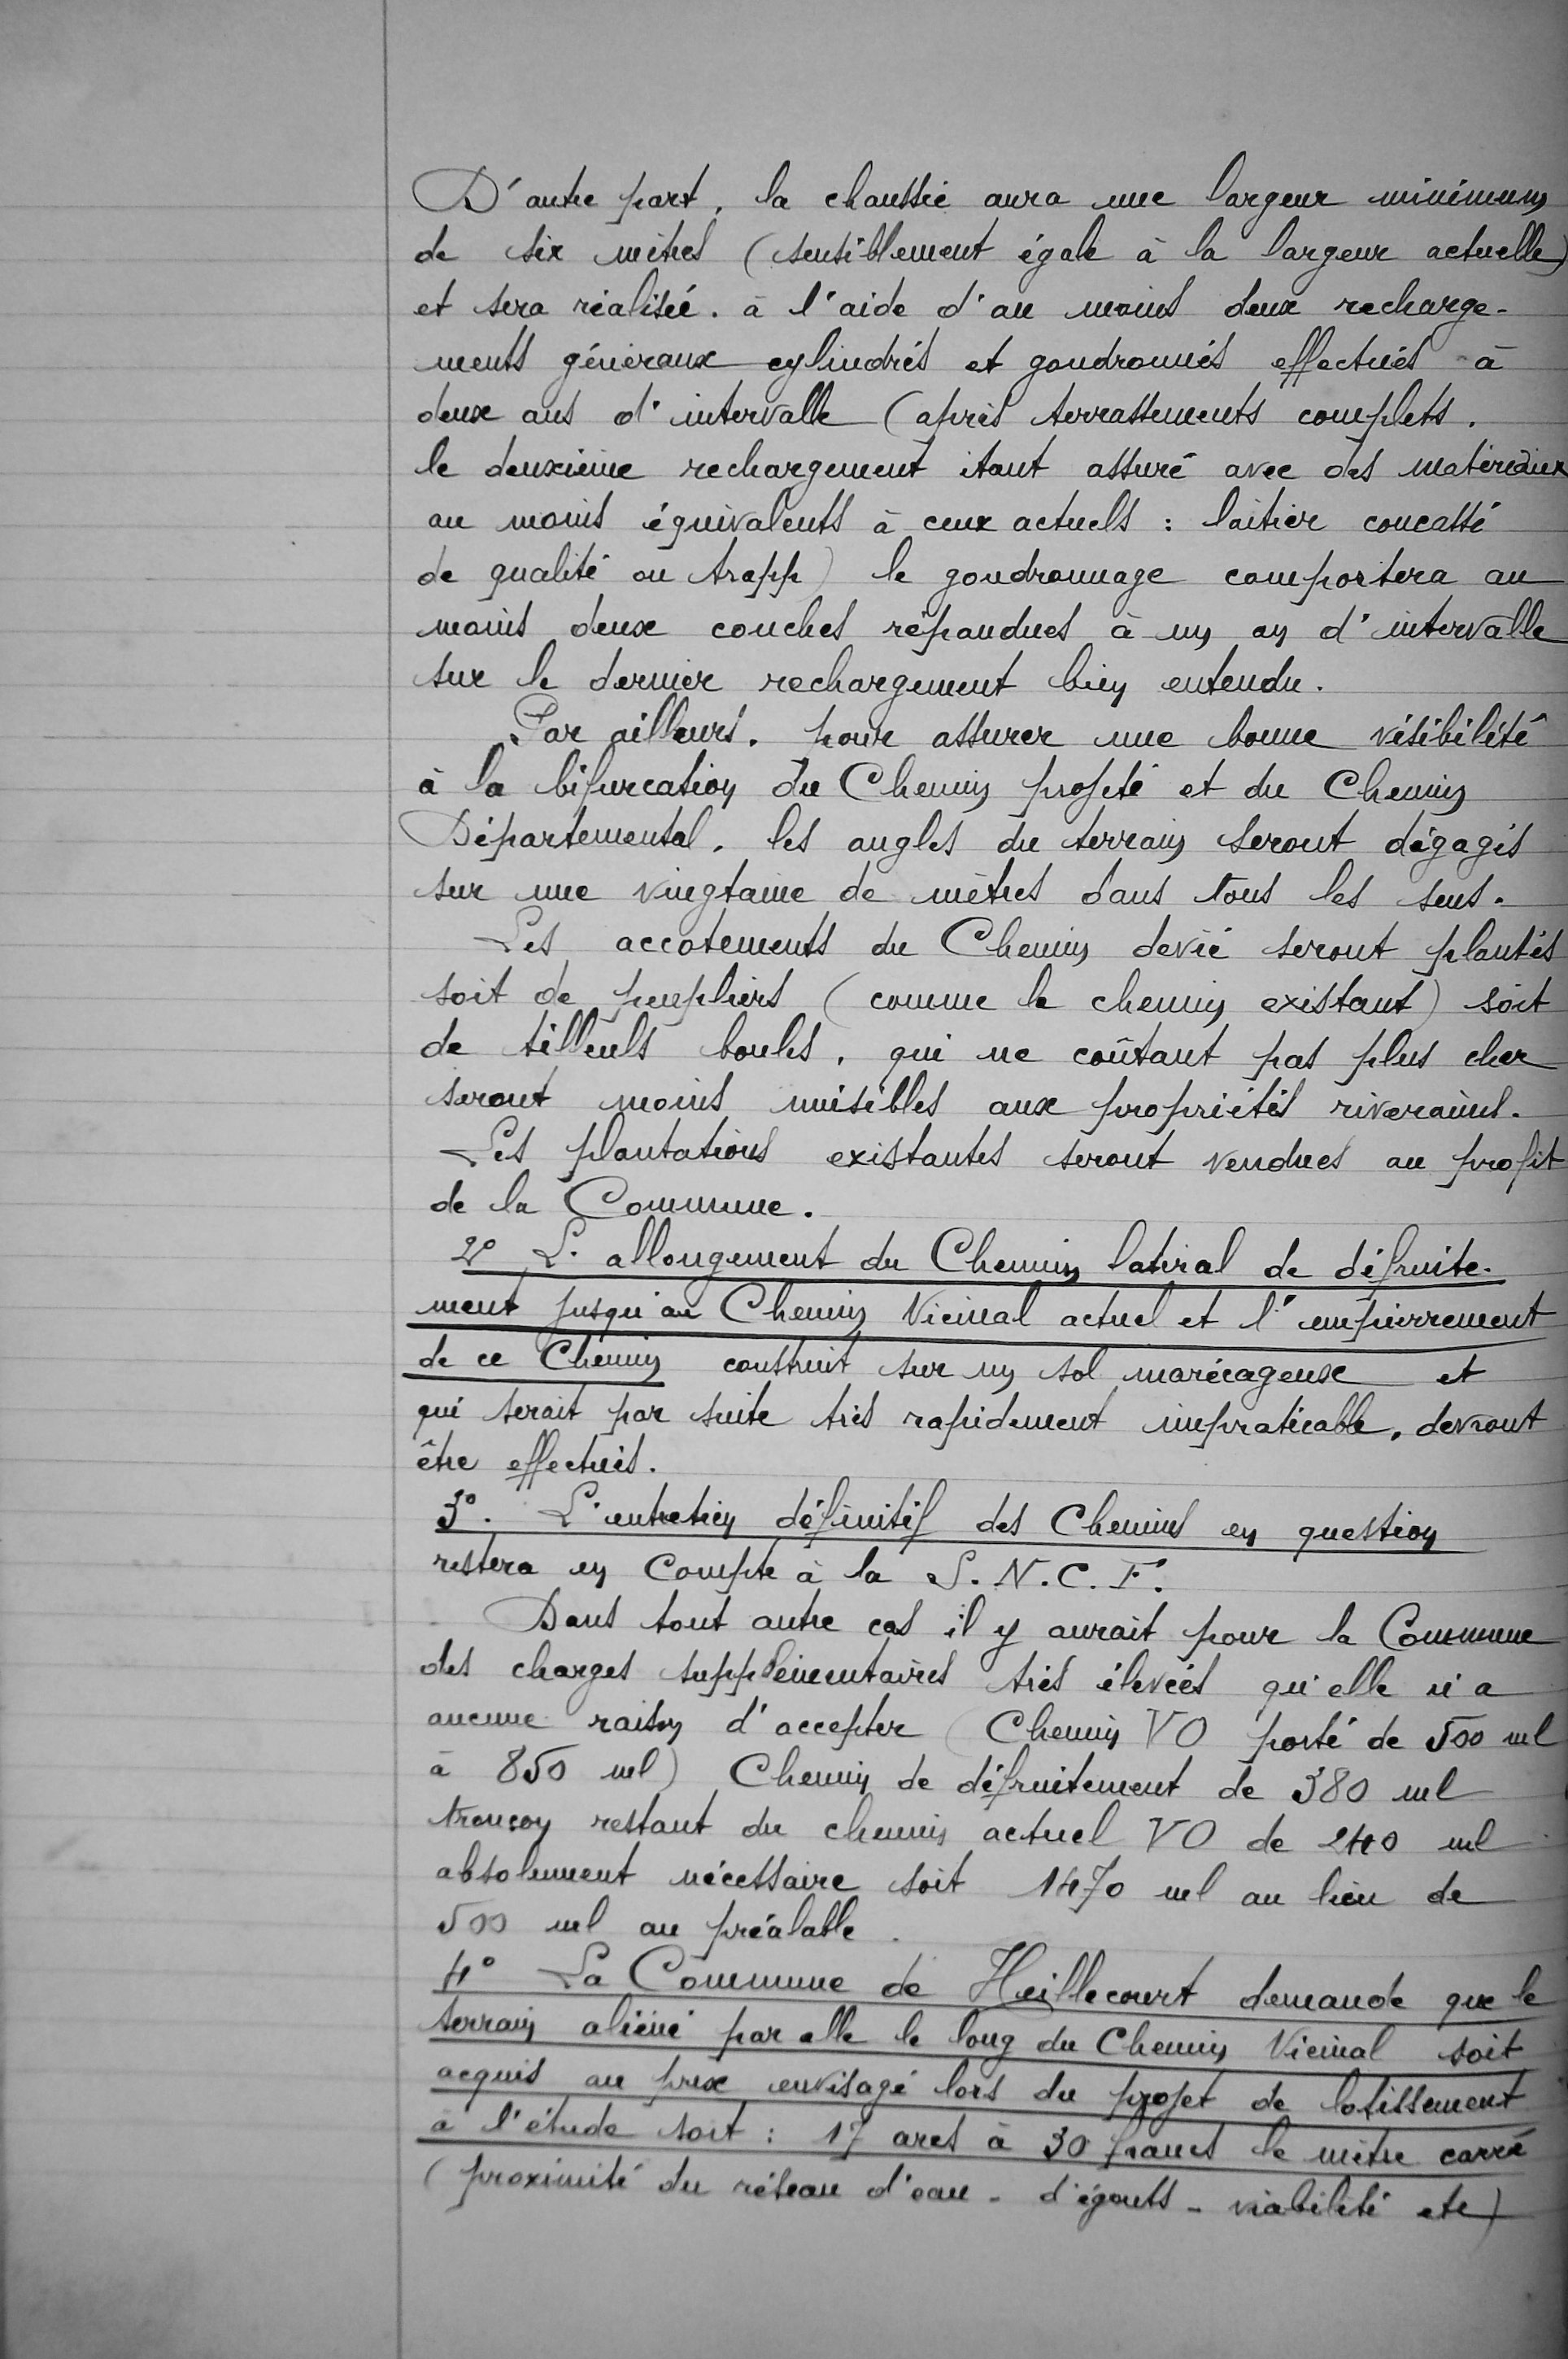 D'autre part, la chaussée aura une largeur minimum
de six mètres (sensiblement égale à la largeur actuelle)
et sera réalisée. à l'aide d'au moins deux recharge-
ments généraux cylindrés et goudronnés effectués à
deux ans d'intervalle (après terrassements complets,
le deuxième rechargement étant assuré avec des matériaux
au moins équivalents à ceux actuels : laitier concassé
de qualité ou trapp) le goudronnage comportera au
moins deux couches répandues à un an d'intervalle
sur le dernier rechargement bien entendu.
Par ailleurs, pour assurer une bonne visibilité
à la bifurcation du Chemin projeté et du Chemin
Départemental, les angles du terrain seront dégagés
sur une vingtaine de mètres dans tous les sens.
Les accotements du Chemin devié seront plantés
soit de peupliers (comme le chemin existant) soit
de tilleuls boules, qui ne coûtant pas plus cher
seront moins nuisibles aux propriétés riveraines.
Les plantations existantes seront vendues au profit
de la Commune.
2° L'allongement du Chemin latéral de défruite-
ment jusqu'au Chemin Vicinal actuel et l'empierrement
de ce Chemin construit sur un sol marécageux et
qui serait par suite très rapidement impraticable, devront
être effectués.
3°. L'entretien définitif des Chemins en question
restera en Compte à la S.N.C.F.
Dans tout autre cas il y aurait pour la Commune
des charges supplémentaires très élevées qu'elle n'a
aucune raison d'accepter (Chemin VO porté de 500 ml
à 850 ml) Chemin de défruitement de 380 ml
tronçon restant du chemin actuel VO de 240 ml
absolument nécessaire soit 1470 ml au lieu de
500 ml au préalable.
4° La Commune de Heillecourt demande que le
terrain aliéné par elle le long du Chemin Vicinal soit
acquis au prix envisagé lors du projet de lotissement
à l'étude soit : 17 ares à 30 francs le mètre carré
(proximité du réseau d'eau - d'égouts - viabilité etc)